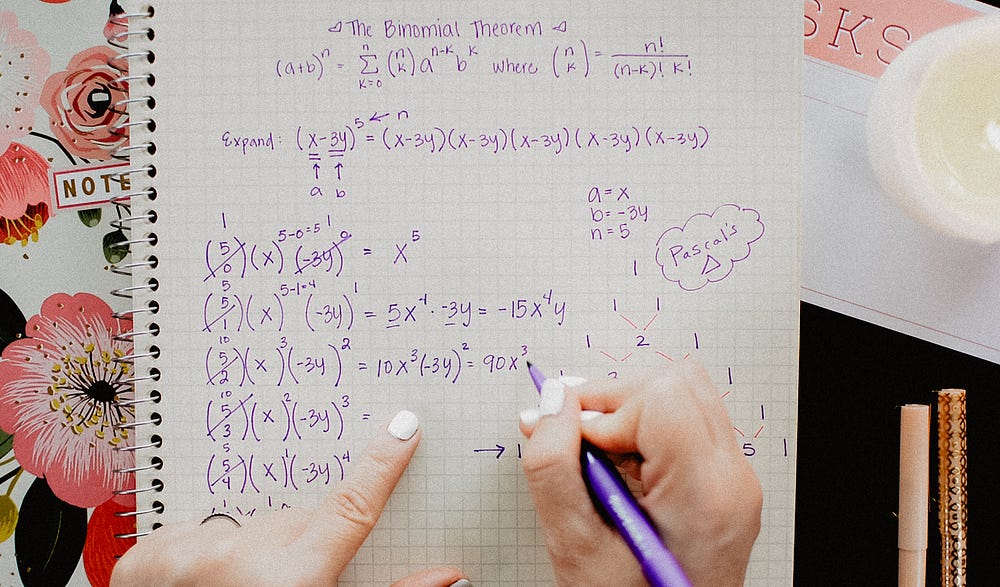 The Binomial Theorem
(a+b)^n = Σ_{k=0}^{n} (n k) a^{n-k} b^k where (n k) = n! / (n-k)! k!
Expand: (x-3y)^5 ← n = (x-3y)(x-3y)(x-3y)(x-3y)(x-3y)
↑ ↑
a b
a = x
b = -3y
n = 5
Pascal's △
1 (5 0)(x)^{5-0=5} (-3y)^0 1 = x^5
5 (5 1)(x)^{5-1=4} (-3y)^1 = 5x^4 · -3y = -15x^4y
10 (5 2)(x)^3 (-3y)^2 = 10x^3(-3y)^2 = 90x^3
10 (5 3)(x)^2 (-3y)^3 =
5 (5 4)(x)^1 (-3y)^4
1
1 1
1 2 1
1
1
→ 1 5 1
NOTE
SKS